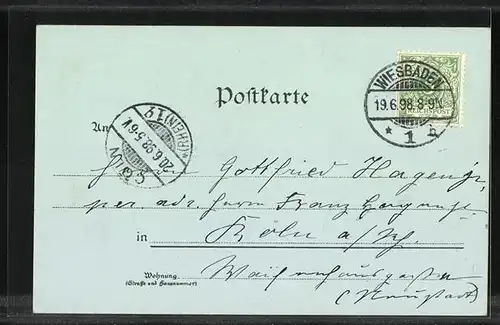 WIESBADEN
19.6.98.8-9N.
* 1 b
REICHSPOST
Postkarte
CÖLN
20.6.98.5-6V.
*(RHEIN)1g
An
Gottfried Hagen jr.
per adr. Herrn Franz Hagen
in Köln a/Rh.
Wohnung.
(Straße und Hausnummer)
(Neustadt)